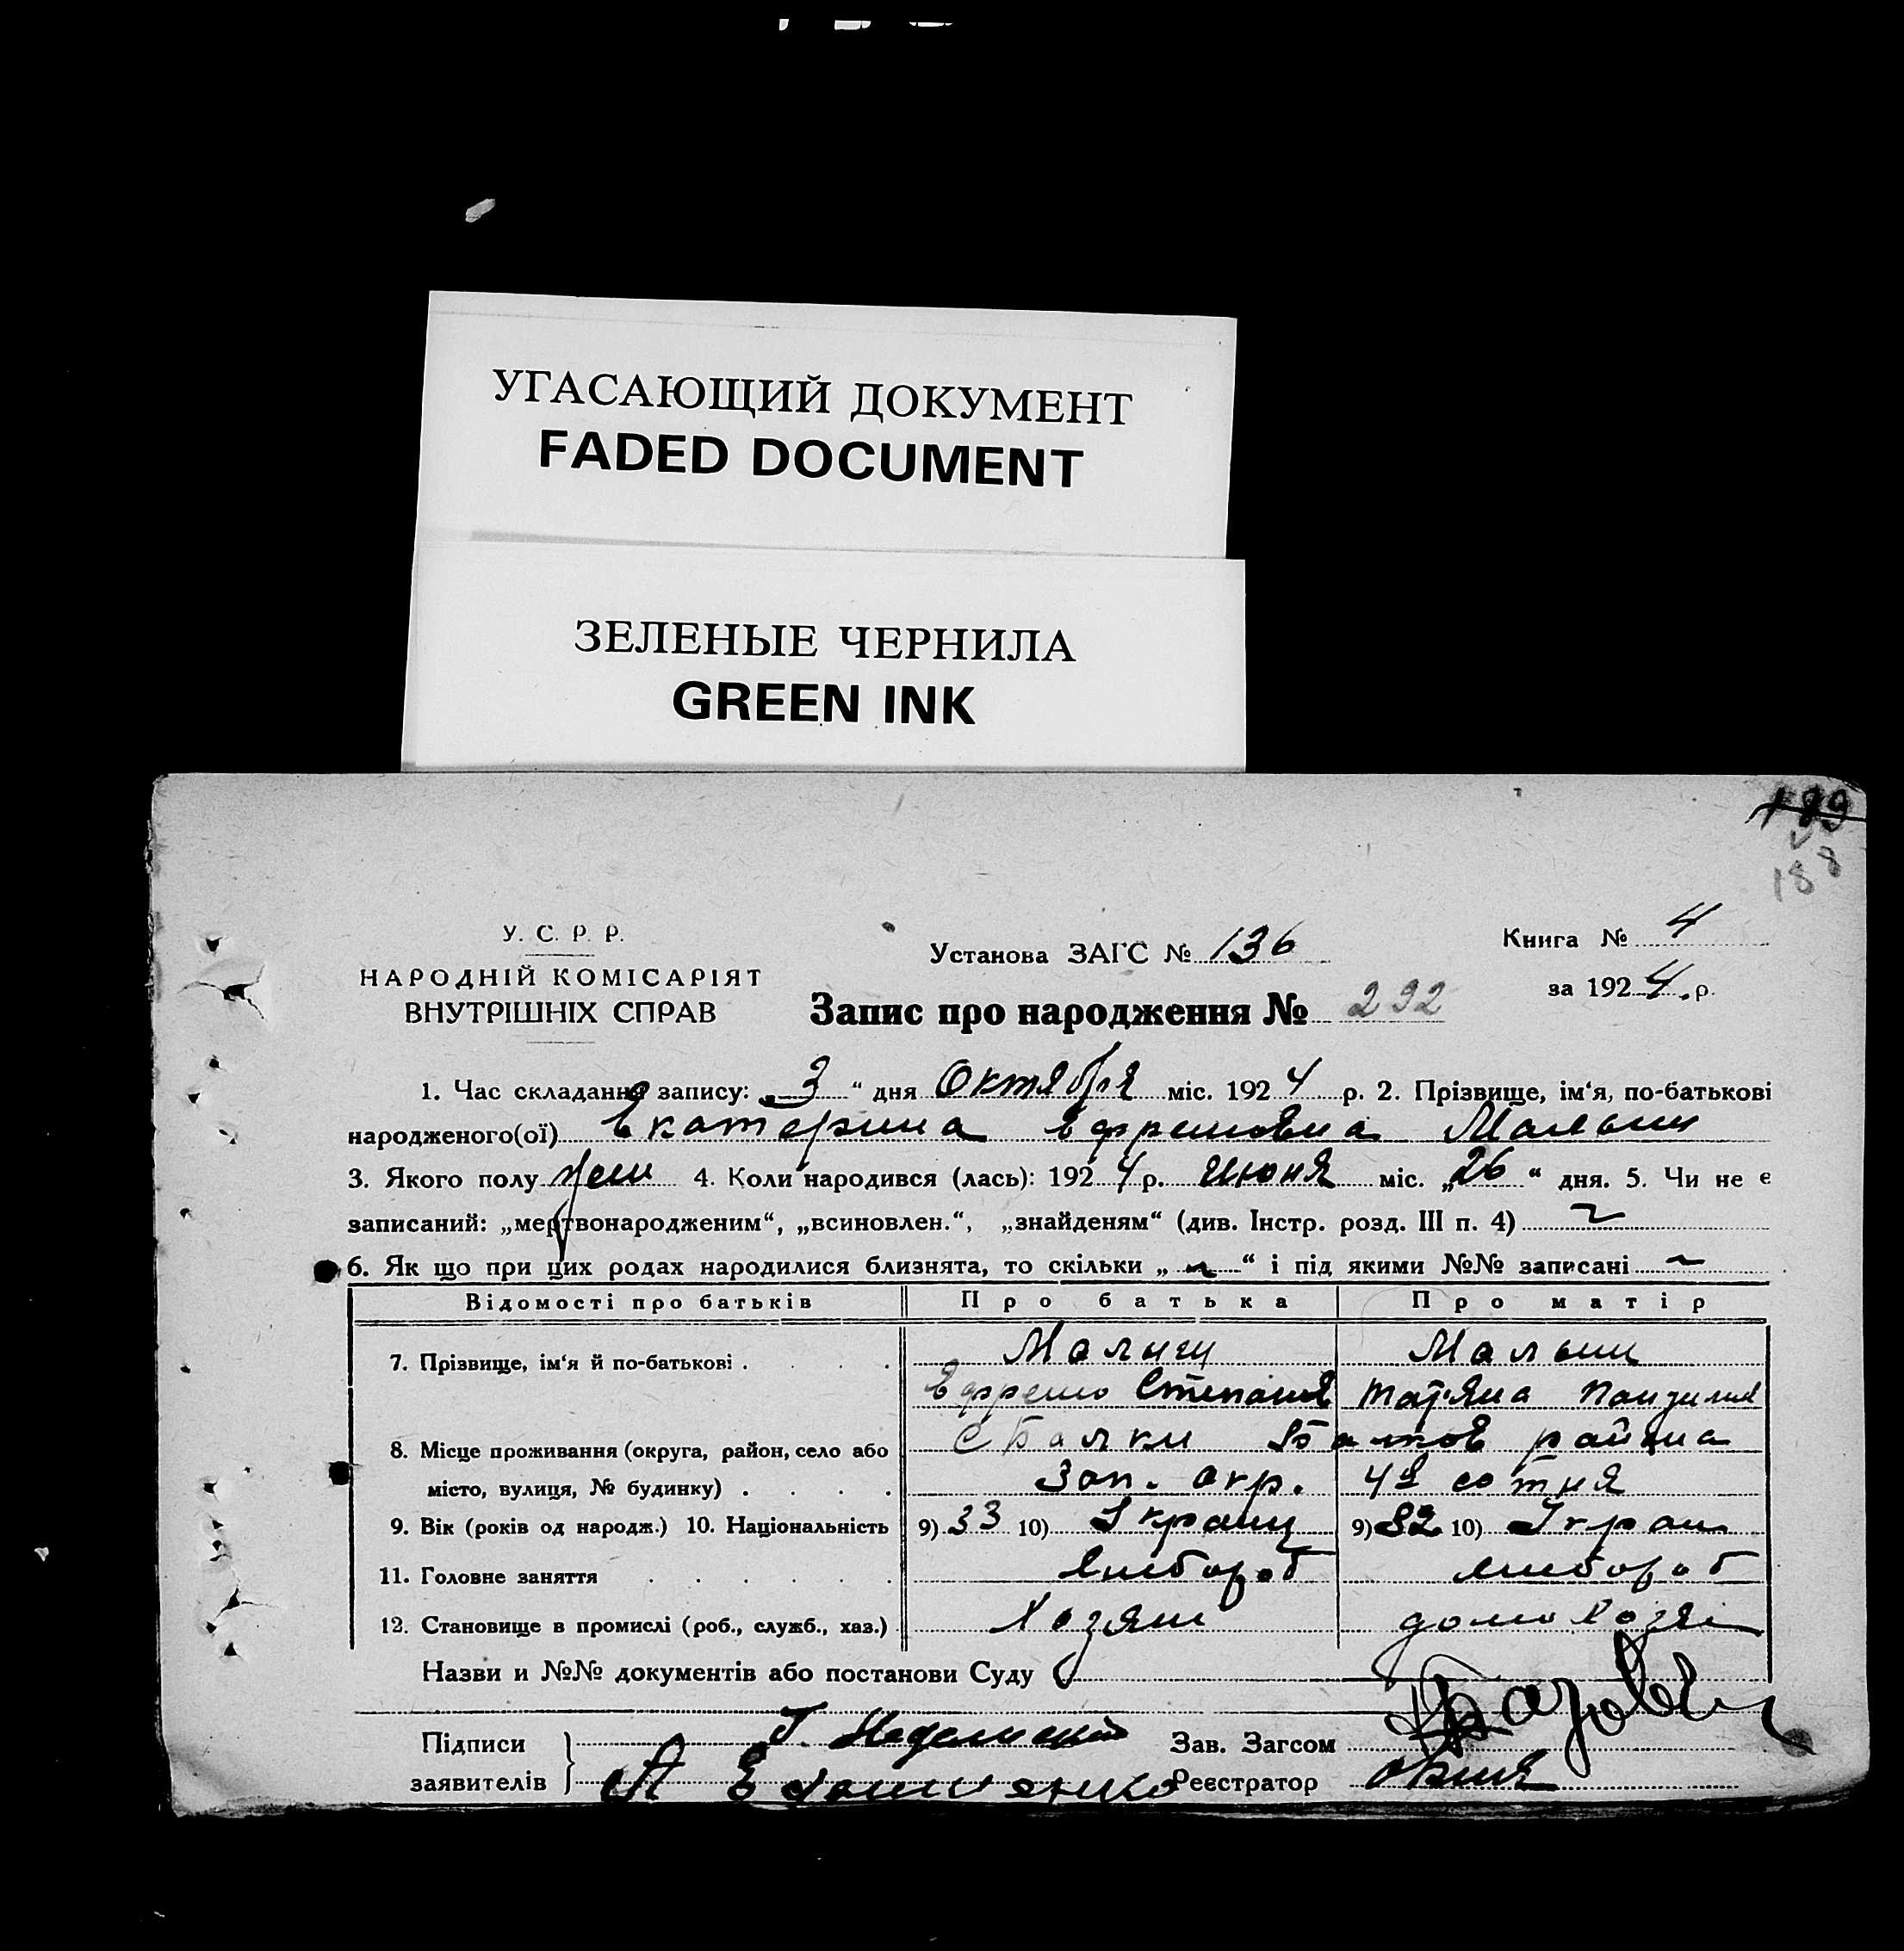 УГАСАЮЩИЙ ДОКУМЕНТ
FADED DOCUMENT
ЗЕЛЕНЫЕ ЧЕРНИЛА
GREEN INK
188
У. С. Р. Р.
НАРОДНІЙ КОМІСАРІЯТ
ВНУТРІШНІХ СПРАВ
Установа ЗАГС № 136
Книга № 4
за 1924 р.
Запис про народження № 292
1. Час складання запису: „3“ дня Октября міс. 1924 р. 2. Прізвище, ім‘я, по-батькові
народженого(ої) Екатерина Ефремовна
3. Якого полу жен 4. Коли народився (лась): 1924 р. Июня міс. „26“ дня. 5. Чи не є
записаний: „мертвонародженим“, „всиновлен.“, „знайденям“ (див. Інстр. розд. III п. 4) ~
6. Як що при цих родах народилися близнята, то скільки „~“ і під якими №№ записані ~
Відомості про батьків Про батька Про матір
7. Прізвище, ім‘я й по-батькові
Ефрем Степанов Татяна
8. Місце проживання (округа, район, село або С Балки района
місто, вулиця, № будинку) Зап. окр. 4я сотня
9. Вік (років од народж.) 10. Національність 9) 33 10) Украин 9) 32 10) Украин
11. Головне заняття хлебороб хлебороб
12. Становище в промислі (роб., служб., хаз.) Хозяин домохозяй
Назви и №№ документів або постанови Суду
Підписи Зав. Загсом
заявителів Реєстратор